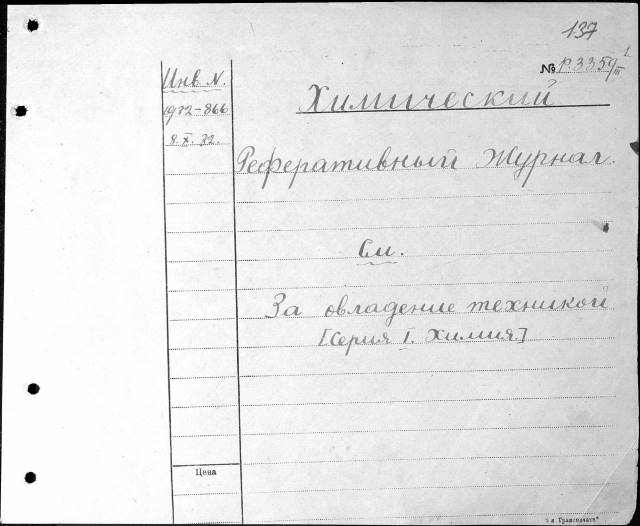 137
№ Р.3359/III 1
Инв. N.
1932-866
8.X.32.
Химический
Реферативный Журнал.
См.
За овладение техникой
[Серия I. Химия.]
Цена
я Транспечати"